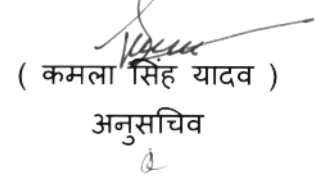 ( कमला सिंह यादव )
अनुसचिव